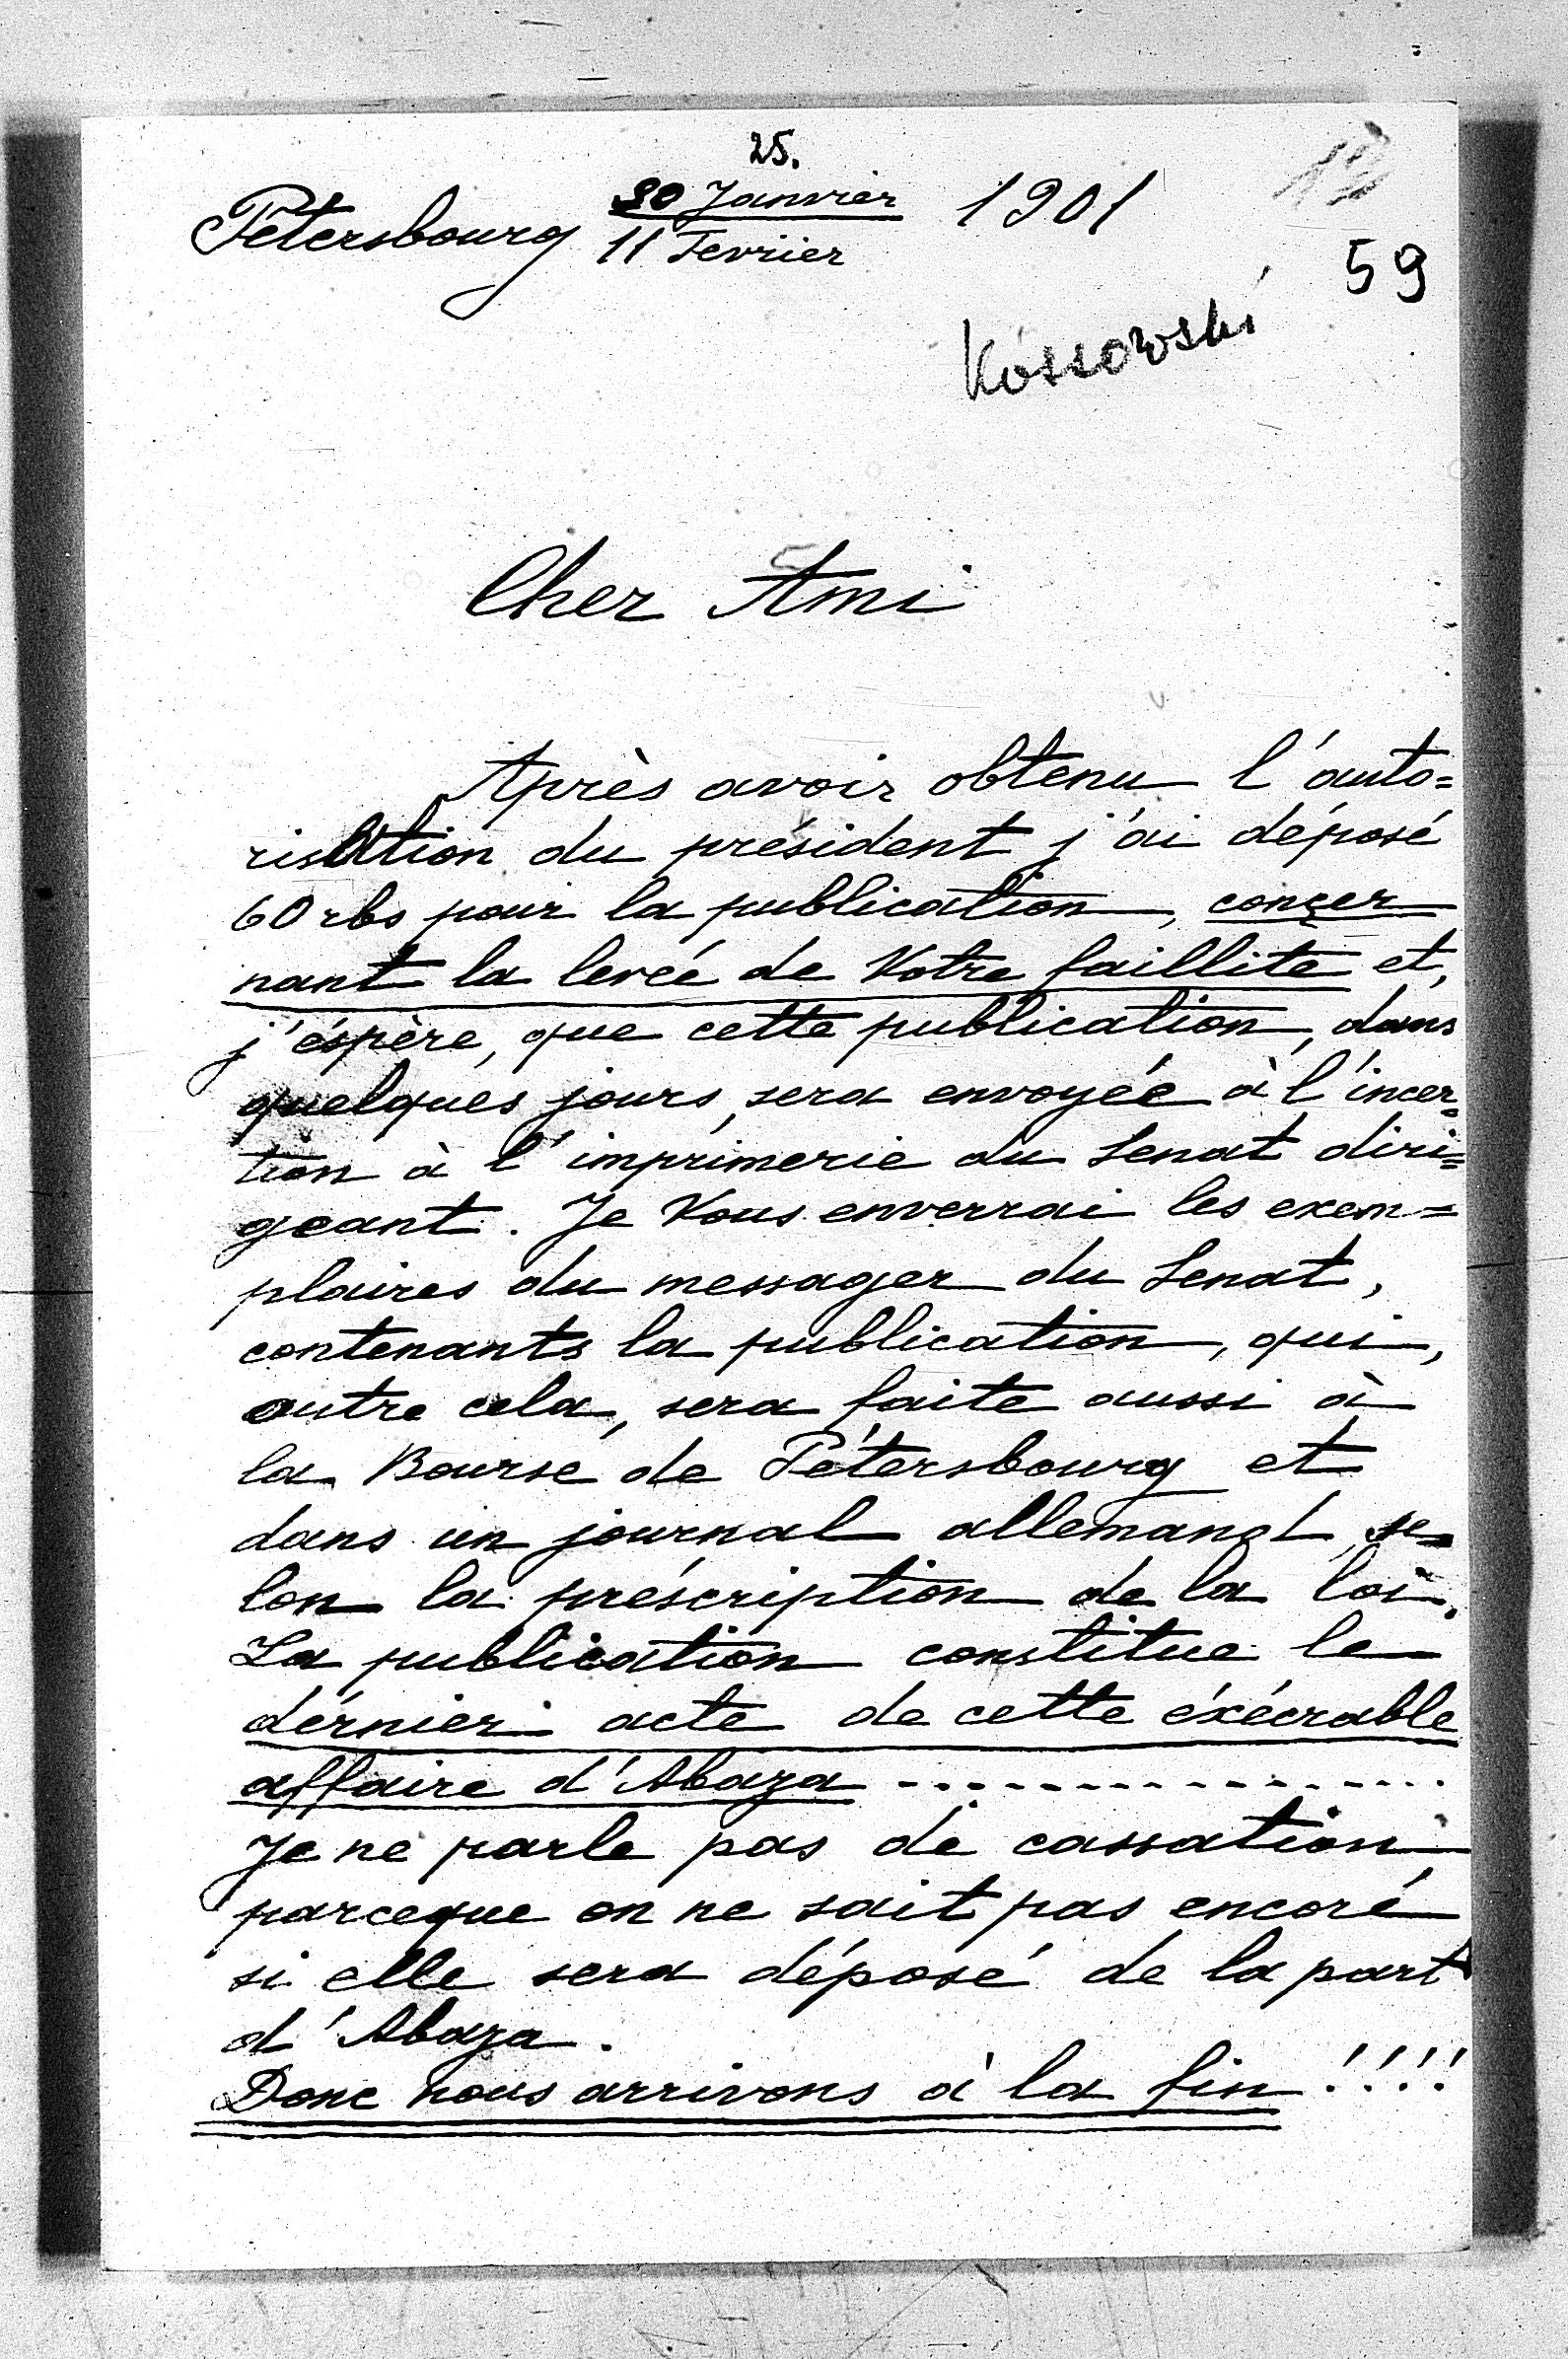 25.
Pétersbourg 30 Janvier 1901
11 Fevrier
59
Kossowski
Cher Ami
Après avoir obtenu l'auto=
risation du président j'ai déposé
60 rbs pour la publication, concer
nant la levée de Votre faillite et,
j'éspère, que cette publication, dans
quelques jours, sera envoyée à l'incer=
tion à l'imprimerie du Senat diri=
geant. Je Vous enverrai les exem=
plaires du messager du Senat,
contenants la publication, qui,
outre cela, sera faite aussi à
la Bourse de Pétersbourg et
dans un journal allemand, se=
lon la préscription de la loi.
La publication constitue le
dérnier acte de cette éxécrable
affaire d'Abaza - - - - - - - - - - - - - - -
Je ne parle pas de cassation
parceque on ne sait pas encore
si elle sera déposé de la part
d'Abaza.
Donc nous arrivons à la fin!!!!